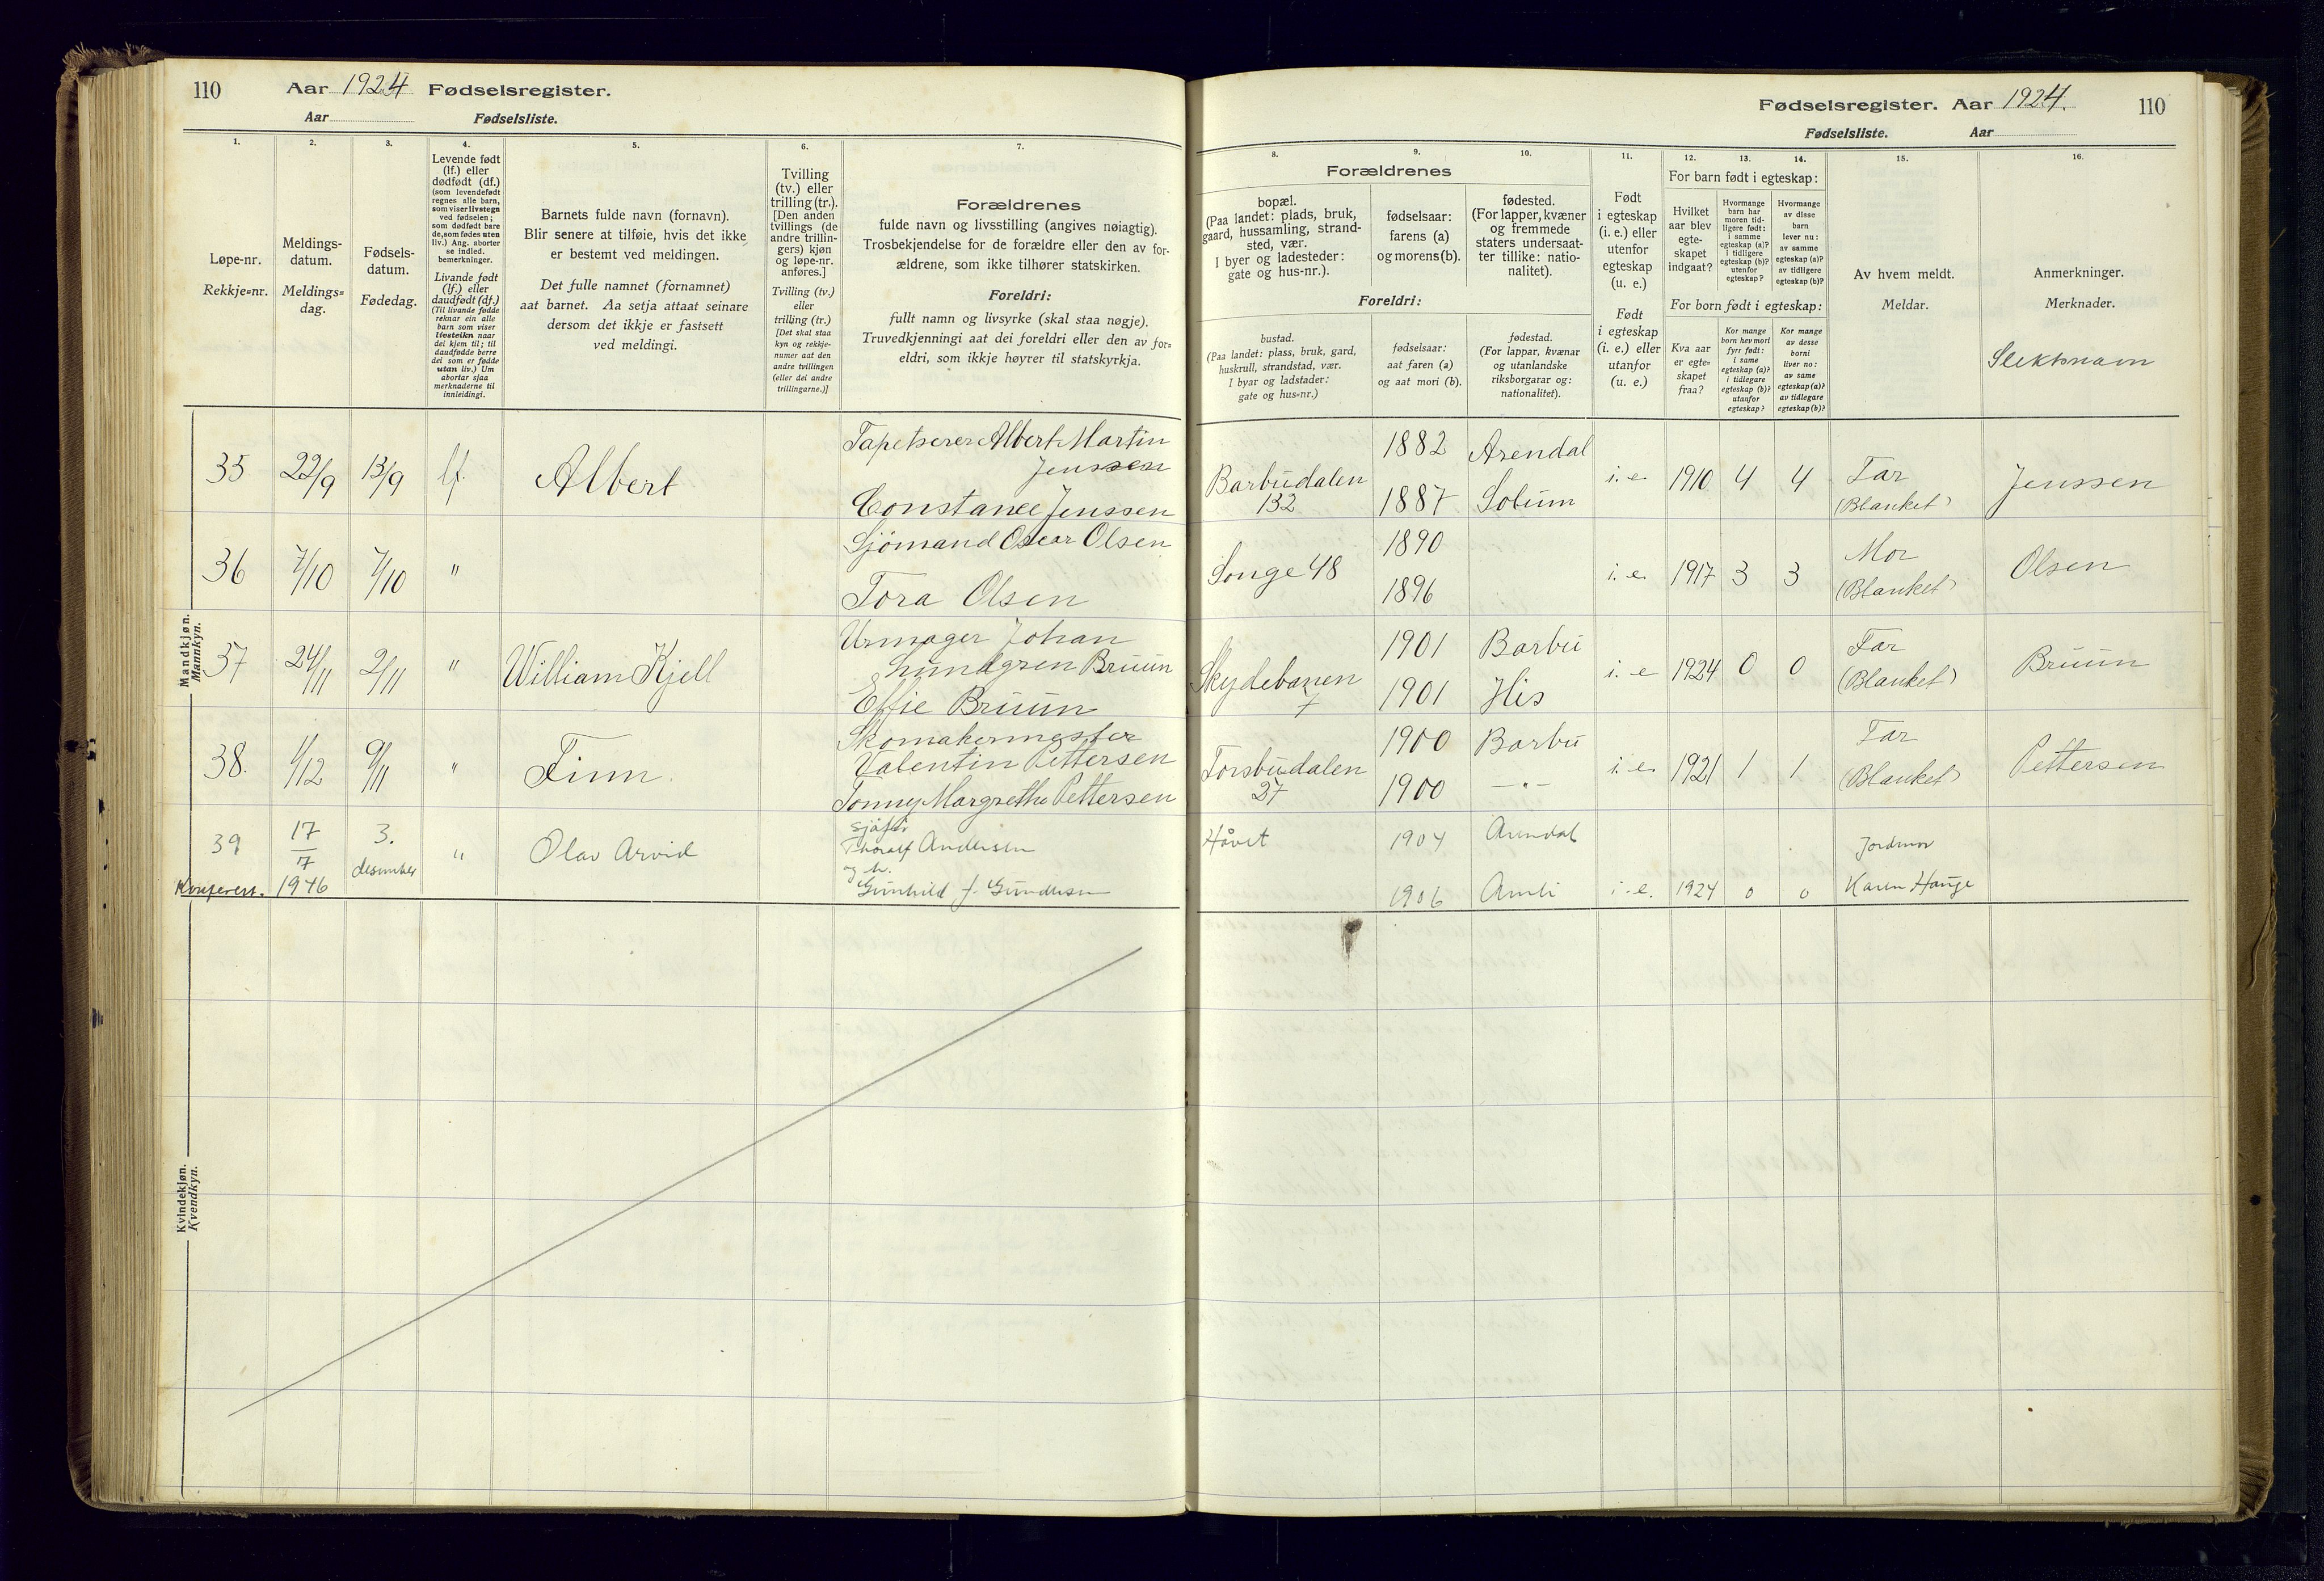 110 Aar 1924 Fødselsregister.
Aar Fødselsliste.
1.
Løpe-nr.
Rekkje=nr.
2.
Meldings-
datum.
Meldings=
dag.
3.
Fødsels-
datum.
Fødedag.
4.
Levende født
(lf.) eller
dødfødt (df.)
(som levendefødt
regnes alle barn,
som viser livstegn
ved fødselen;
som dødfødt bare
de, som fødes uten
liv.) Ang. aborter
se indled.
bemerkninger.
Livande født
(lf.) eller
daudfødt (df.)
(Til livande fødde
reknar ein alle
barn som viser
livsteikn naar
dei kjem til; til
daudfødde berre
dei som er fødde
utan liv.) Um
abortar sjaa
merknaderne til
innleidingi.
5.
Barnets fulde navn (fornavn).
Blir senere at tilføie, hvis det ikke
er bestemt ved meldingen.
Det fulle namnet (fornamnet)
aat barnet. Aa setja attaat seinare
dersom det ikkje er fastsett
ved meldingi.
6.
Tvilling
(tv.) eller
trilling (tr.).
[Den anden
tvillings (de
andre trillin-
gers) kjøn
og løpe-nr.
anføres.]
Tvilling (tv.)
eller
trilling (tr.)
[Det skal staa
kyn og rekkje-
numer aat den
andre tvillingen
(eller dei andre
trillingarne.)]
7.
Forældrenes
fulde navn og livsstilling (angives nøiagtig).
Trosbekjendelse for de forældre eller den av for-
ældrene, som ikke tilhører statskirken.
Foreldri:
fullt namn og livsyrke (skal staa nøgje).
Truvedkjenningi aat dei foreldri eller den av for=
eldri, som ikkje høyrer til statskyrkja.
Mandkjøn.
Mannkyn.
35 22/9 13/9 lf. Albert
Tapetserer Albert Martin
Jenssen
Constance Jenssen
36 7/10 7/10 "
Sjömand Oscar Olsen
Tora Olsen
37 24/11 2/11 " William Kjell
Urmager Johan
Lundgren Bruun
Effie Bruun
38. 1/12 9/11 " Finn.
Skomakermester
Valentin Pettersen
Tonny Margrethe Pettersen
39 17/7 3. " Olav Arvid
1946 desember
sjåfør
Thoralf Andersen
og h.
Gunhild f. Gundersen
Kvindekjøn.
Kvendkyn.
Fødselsregister. Aar 1924. 110
Fødselsliste. Aar
Forældrenes
8.
bopæl.
(Paa landet: plads, bruk,
gaard, hussamling, strand-
sted, vær.
I byer og ladesteder:
gate og hus-nr.).
9.
fødselsaar:
farens (a)
og morens (b).
10.
fødested.
(For lapper, kvæner
og fremmede
staters undersaat-
ter tillike: natio-
nalitet).
Foreldri:
bustad.
(Paa landet: plass, bruk, gard,
huskrull, strandstad, vær.
I byar og ladstader:
gate og hus=nr.)
fødselsaar:
aat faren (a)
og aat mori (b).
fødestad.
(For lappar, kvænar
og utanlandske
riksborgarar og:
nationalitet).
11.
Født
i egteskap
(i. e.) eller
utenfor
egteskap
(u. e.)
Født
i egteskap
(i. e.) eller
utanfor
(u. e.)
12. 13. 14.
For barn født i egteskap:
Hvilket
aar blev
egte-
skapet
indgaat?
Hvormange
barn har
moren tid-
ligere født:
i samme
egteskap (a)?
i tidligere
egteskap (b)?
utenfor
egteskap?
Hvormange
av disse
barn
lever nu:
av samme
egteskap (a)?
av tidligere
egteskap (b)?
For born født i egteskap:
Kva aar
er egte=
skapet
fraa?
Kor mange
born hev mori
fyrr født:
i same
egteskap (a)?
i tidlegare
egteskap (b)?
utanfor
egteskap?
Kor mange
av desse
borni
liver no:
av same
egteskap (a)?
av tidlegare
egteskap (b)?
15.
Av hvem meldt.
Meldar.
16.
Anmerkninger.
Merknader.
Slektsnavn
Barbudalen
132
1882 Arendal
1887
i. e. 1910 4 4
Far
(Blanket)
Jenssen
Songe 48
1890
1896
i. e. 1917 3 3
Mor
(Blanket)
Olsen
Skydebanen
7
1901 Barbu
1901 His
i. e. 1924 0 0
Far
(Blanket)
Bruun
Torsbudalen
27
1900 Barbu
1900 —"—
i. e. 1921 1 1
Far
(Blanket)
Pettersen
Håvet
1904 Arendal
1906 Åmli
i. e. 1924 0 0
Jordmor
Karen Hauge